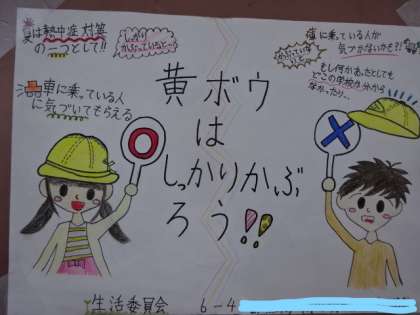 夏は熱中症対策
の一つとして!!
しっかり
かぶっていると…
車に乗っている人
に気づいてもらえる
かぶっていないと…
車に乗っている人が
気づかないかも?!
もし何かあったとしても
どこの学校か分から
なかったり…
黄ボウ
は
しっかりかぶ
ろう!!
生活委員会 6-4